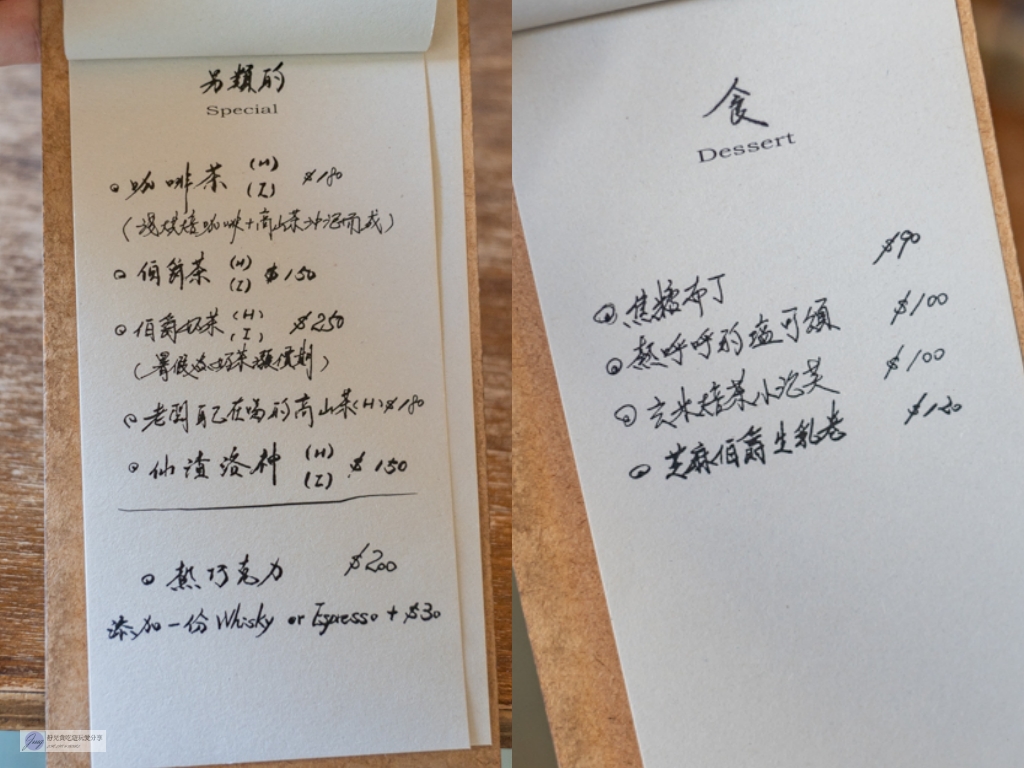 另類的
Special
咖啡茶 (H) (I) $180
(淺烘焙咖啡+高山茶沖泡而成)
伯爵茶 (H) (I) $150
伯爵奶茶 (H) (I) $250
老闆自己在喝的高山茶(H) $180
仙渣洛神 (H) (I) $150
熱巧克力 $200
添加一份 Whisky or Espresso + $30
食
Dessert
焦糖布丁 $90
熱呼呼的瘟可頌 $100
玄米焙茶小泡芙 $100
芝麻伯爵生乳卷 $120